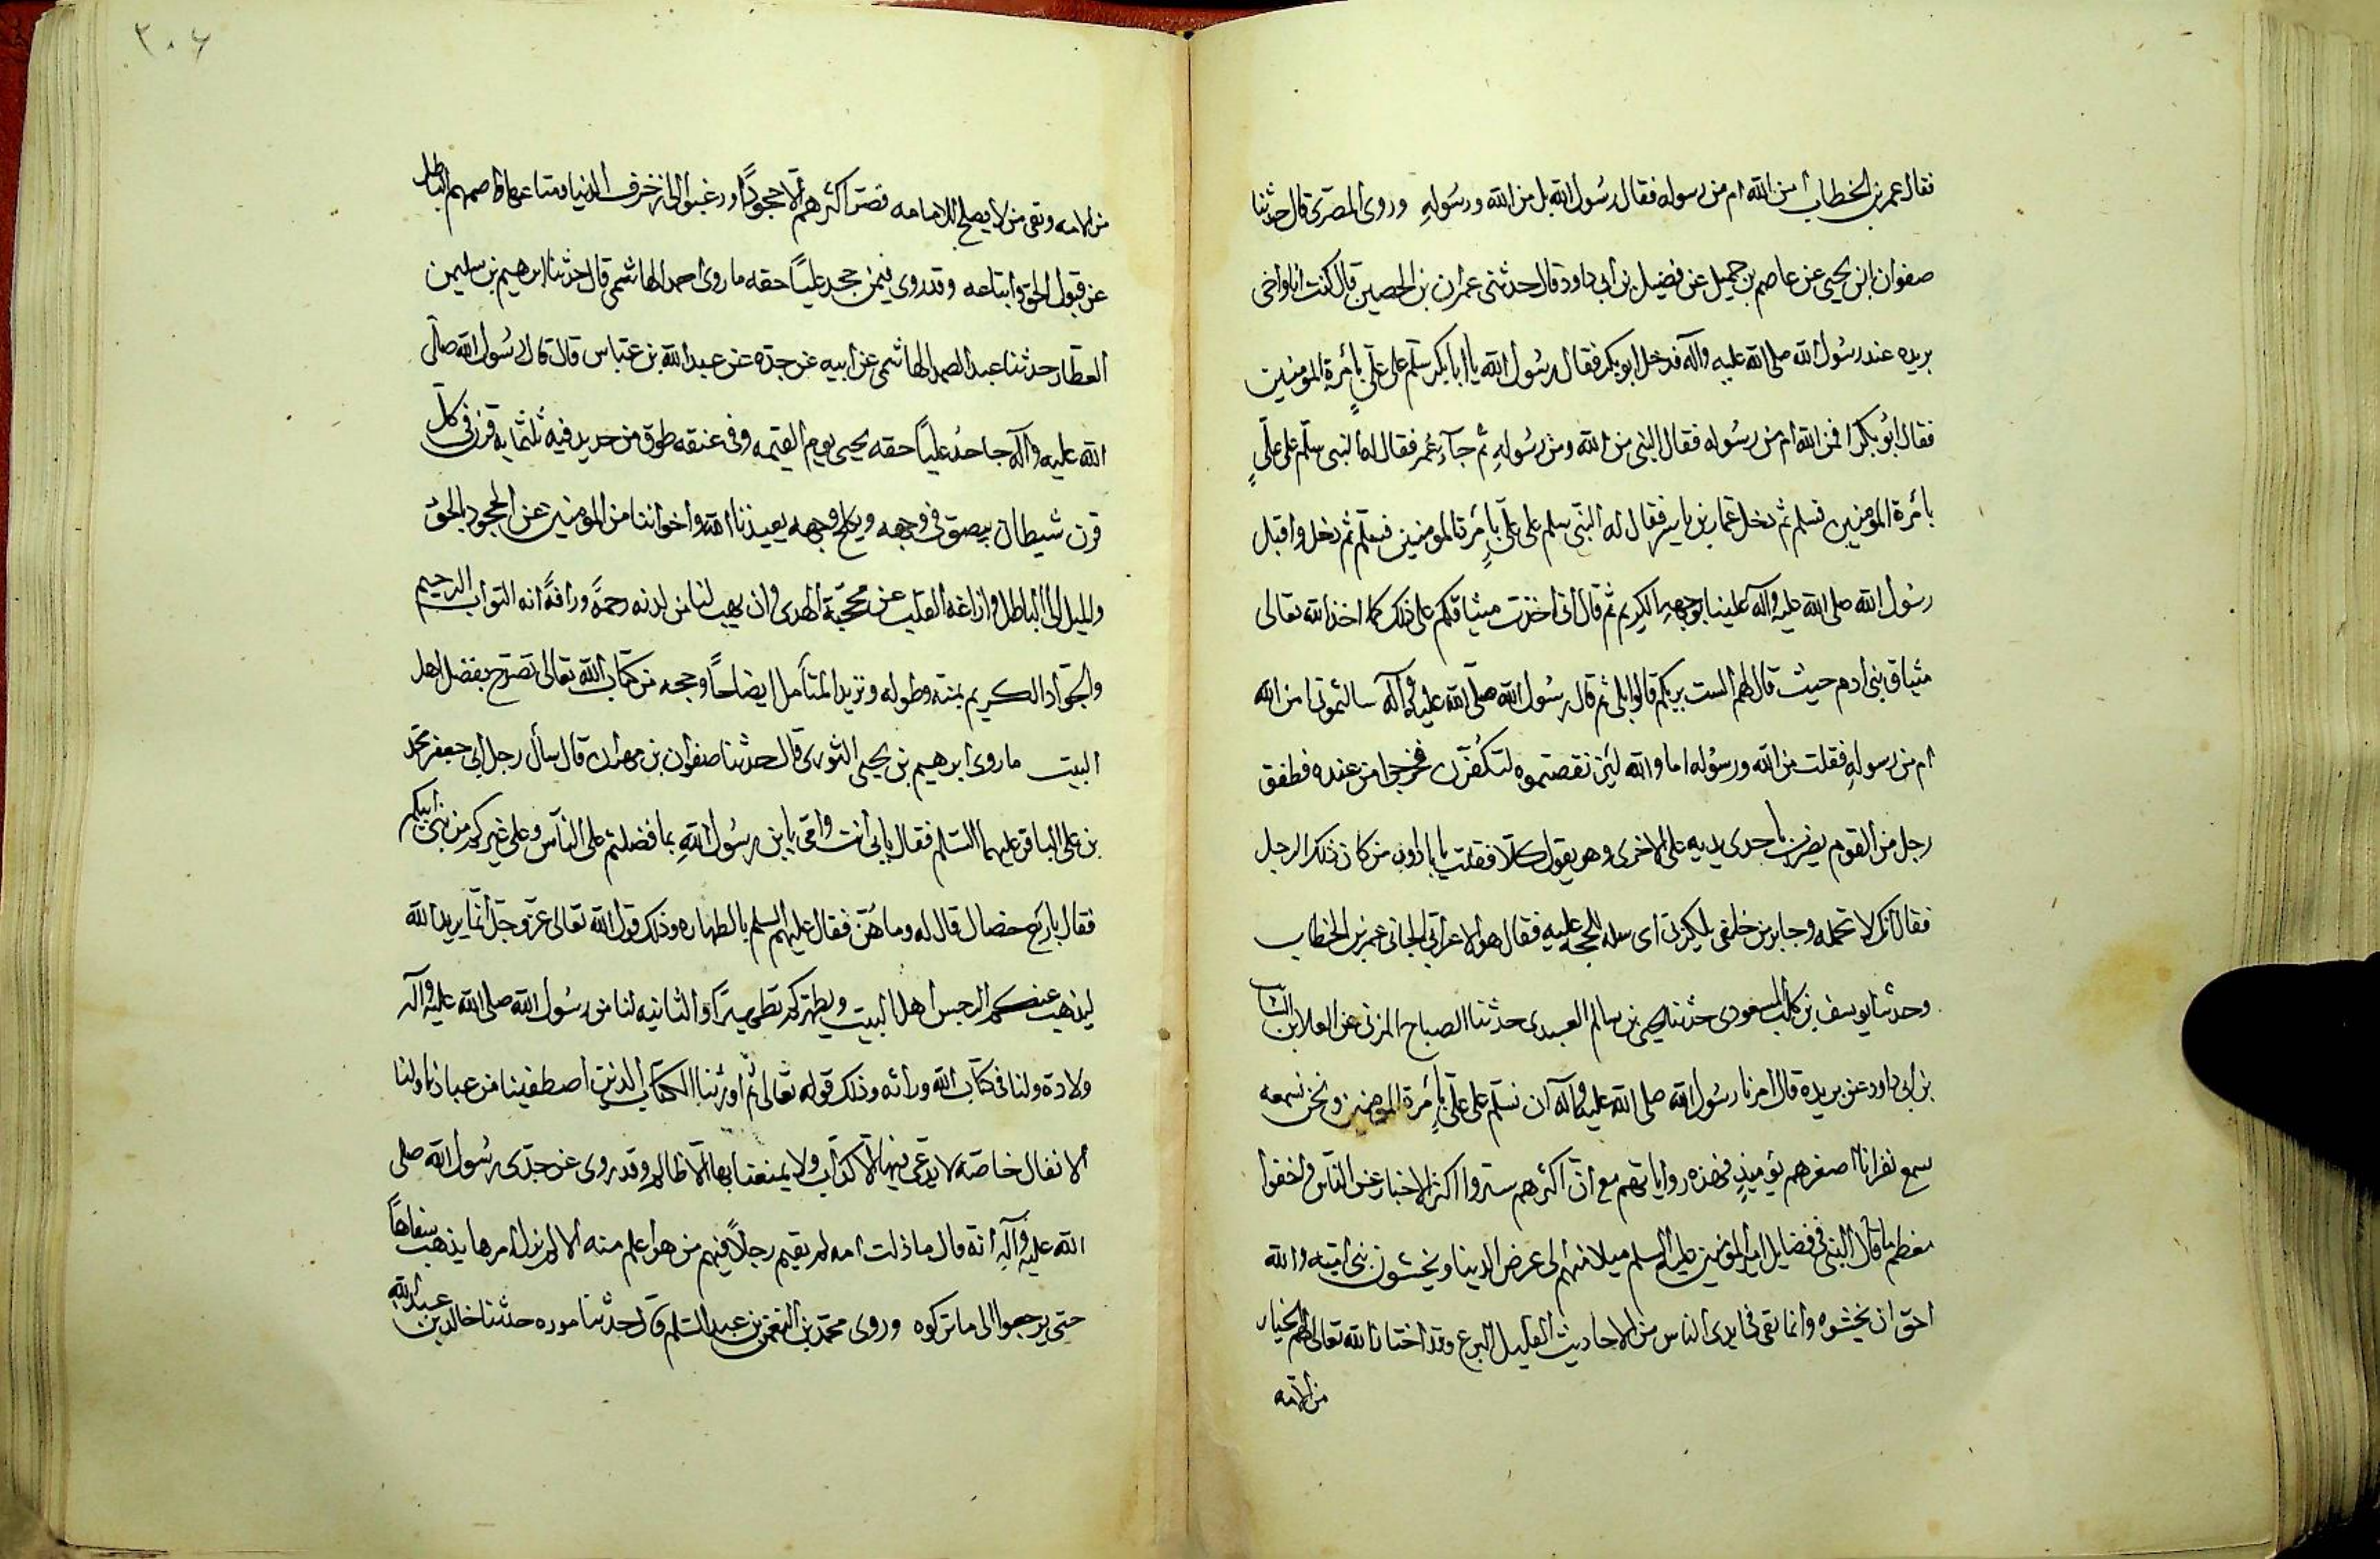 فقال عمر بن الخطاب امن الله ام من رسوله فقال رسُول الله بل من الله ورسُولهِ وروى المصرى قال حدثنا
صفوان ابن يحيى عن عاصم بن حميل عن فضيل بن ابى داود قال حدثنى عمران بن الحصين قال كنت انا واخى
بريده عند رسُول الله صلى الله عليه وآله فدخل ابو بكر فقال رسُول الله يا ابا بكر سلّم على علّيٍ بأمرة المومنين
فقال ابُو بكر افمن الله ام من رسُوله فقال النبى من الله ومن رسُولهِ ثم جآء عُمر فقال له النبى سلّم على علّيٍ
بأمرة المومنين فسلم ثم دخل عمار بن ياسر فقال له النبّى سلم على علّيٍ بأمرة المومنين فسلم ثم دخل واقبل
رسُول الله صلى الله عليه وآله علينا بوجههِ الكريم ثم قال انى اخذت ميثاقكم على ذلك كما اخذ الله تعالى
مثياق بنى ادم حيث قال لهم الست بربكم قالوا بلى ثم قال رسُول الله صلّى الله عليه وآله سالتمونى امن الله
ام من رسولهِ فقلت من الله ورسُوله اما والله لئن نقضتموه لتكُفرن فخرجوا من عنده فطفق
رجل من القوم يضرب باحدى يديه على الاخرى وهو يقول كلا فقلت يا با داود من كان ذلك الرجل
فقال انك لا تحمله وجابر من خلفى يليكزنى اى سله الحجه عليهِ فقال هو الاعرابى الجانى عمر بن الخطاب
وحدثنا يوسف بن كليب المسعودى حدثنا يحيى بن سالم العبدى حدثنا الصباح المزنى عن العلا بن
بن ابى داود عن بريده قال امرنا رسُول الله صلى الله عليه وآله ان نسّلم على علّيٍ بأمرة المومنين ونحن تسعه
سمع نفر انا اصغرهم يوميذٍ فهذه رواياتهم مع انّ اكثرهم ستروا اكثر الاخبار عن الناس واخفوا
معظم ما قال النبى فى فضايل امير المومنين عليه السلم ميلا منهم الى عرض الدينا ويخشون بنى اميّه والله
احق ان يخشوه وانما بقى فى ايدى الناس من الاحاديث القليل وقد اختار الله تعالى لهم الخيار
من الامّه
٣٠۶
من الامه وبقى من لا يصلح للامامه اكثرهم الّا جحودًا ورغبوا الى زخرف الدنيا ومتاعها الباطل
عن قبول الحق واتباعه وقد روى فيمن جحد عليّاً حقه ما روى احمد الهاشمى قال حدثنا ابرهيم بن سليمن
العطّار حدثنا عبد الصمد الهاشمى عن ابيه عن جدّه عن عبد الله بن عبّاس قال قال رسُول الله صلّى
الله عليه وآله جاحدُ عليّاً حقه يحيى يوم القيمه وفى عنقه طوق من حديد فيه ثلثمايه قرن فى كلّ
قرن شيطان يبصق فى وجهه ويكلح وجهه يعيذنا الله واخواننا من المومنين عن الجحود بالحق
والميل الى الباطل وازاغه القلب عن محجّة الهدى وان يهب لنا من لدنه رحمةً ورافةً انه التواب الرحيم
والجوّاد الكريم بمنّه وطوله ونزيد المتأمل ايضاحاً وحجه من كتاب الله تعالى تصرّح بفضل اهل
البيت ما روى ابرهيم بن يحيى الثورى قال حدثنا صفوان بن مهران قال سأل رجل ابى جعفر محّمد
بن على الباقر عليهما السّلم فقال بابى انت وامّى يا بن رسُول اللهِ بما فضلتم على النآس وعلى غيركم من بنى ابيكم
فقال باربع خصال قال له وما هُنّ فقال عليهم السلم بالطهاره وذلك قول الله تعالى عزّ وجّل انّما يريد الله
ليذهب عنكم الرجس اهل البيت ويطهّركم تطهيراً والثانيه لنا من رسُول الله صلى الله عليه وآله
ولادة ولنا فى كتاب الله وراثه وذلك قوله تعالى ثم اورثنا الكتاب الذين اصطفينا من عبادنا ولنا
الانفال خاصّه لا يدّعى فيها الّا كذاب ولا يمنعنا بها الّا ظالم وقد روى عن جدّى رسُول الله صلى
الله عليه وآلهِ انّه قال ما ذلت امه لم يقيم رجلاً فيهم من هو اعلم منه الا لم يزل امرها يذهب سفاهاً
حتى يرجعوا الى ما تركوه وروى محمّد بن النعمن بن عبد السّلم قال حدثنا موده حدثنا خالد بن عبد الله